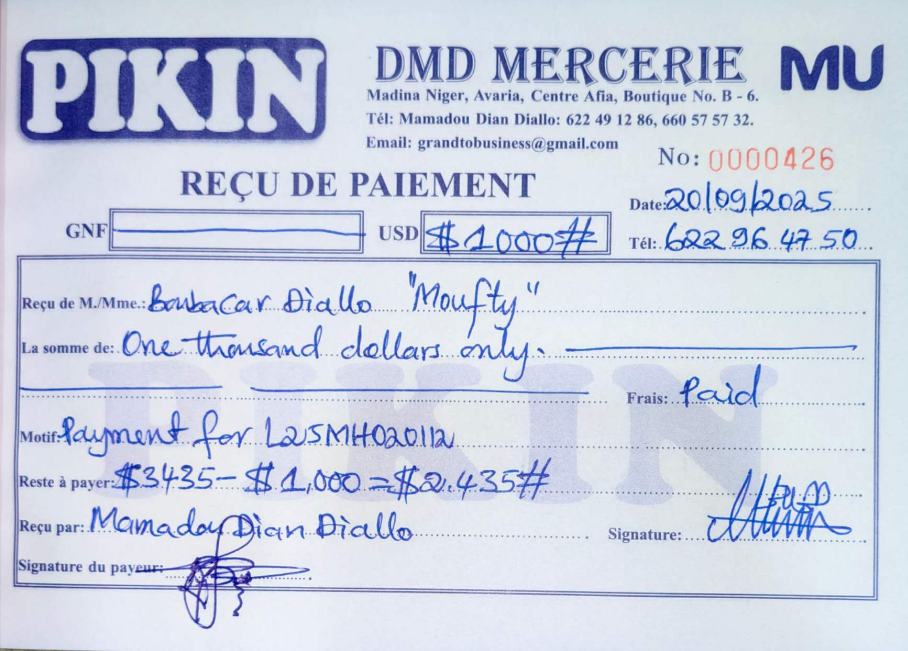 PIKIN
DMD MERCERIE MU
Madina Niger, Avaria, Centre Afia, Boutique No. B - 6.
Tél: Mamadou Dian Diallo: 622 49 12 86, 660 57 57 32.
Email: grandtobusiness@gmail.com
No: 0000426
REÇU DE PAIEMENT
Date: 20/09/2025
GNF USD $1000#
Tél: 622 96 47 50
Reçu de M./Mme.: Boubacar Diallo "Moufty"
La somme de: One thousand dollars only.
Frais: Paid
PIKIN
Motif: Payment for L25MH020112
Reste à payer: $3435 - $1,000 = $2.435#
Reçu par: Mamadou Dian Diallo
Signature:
Signature du payeur: